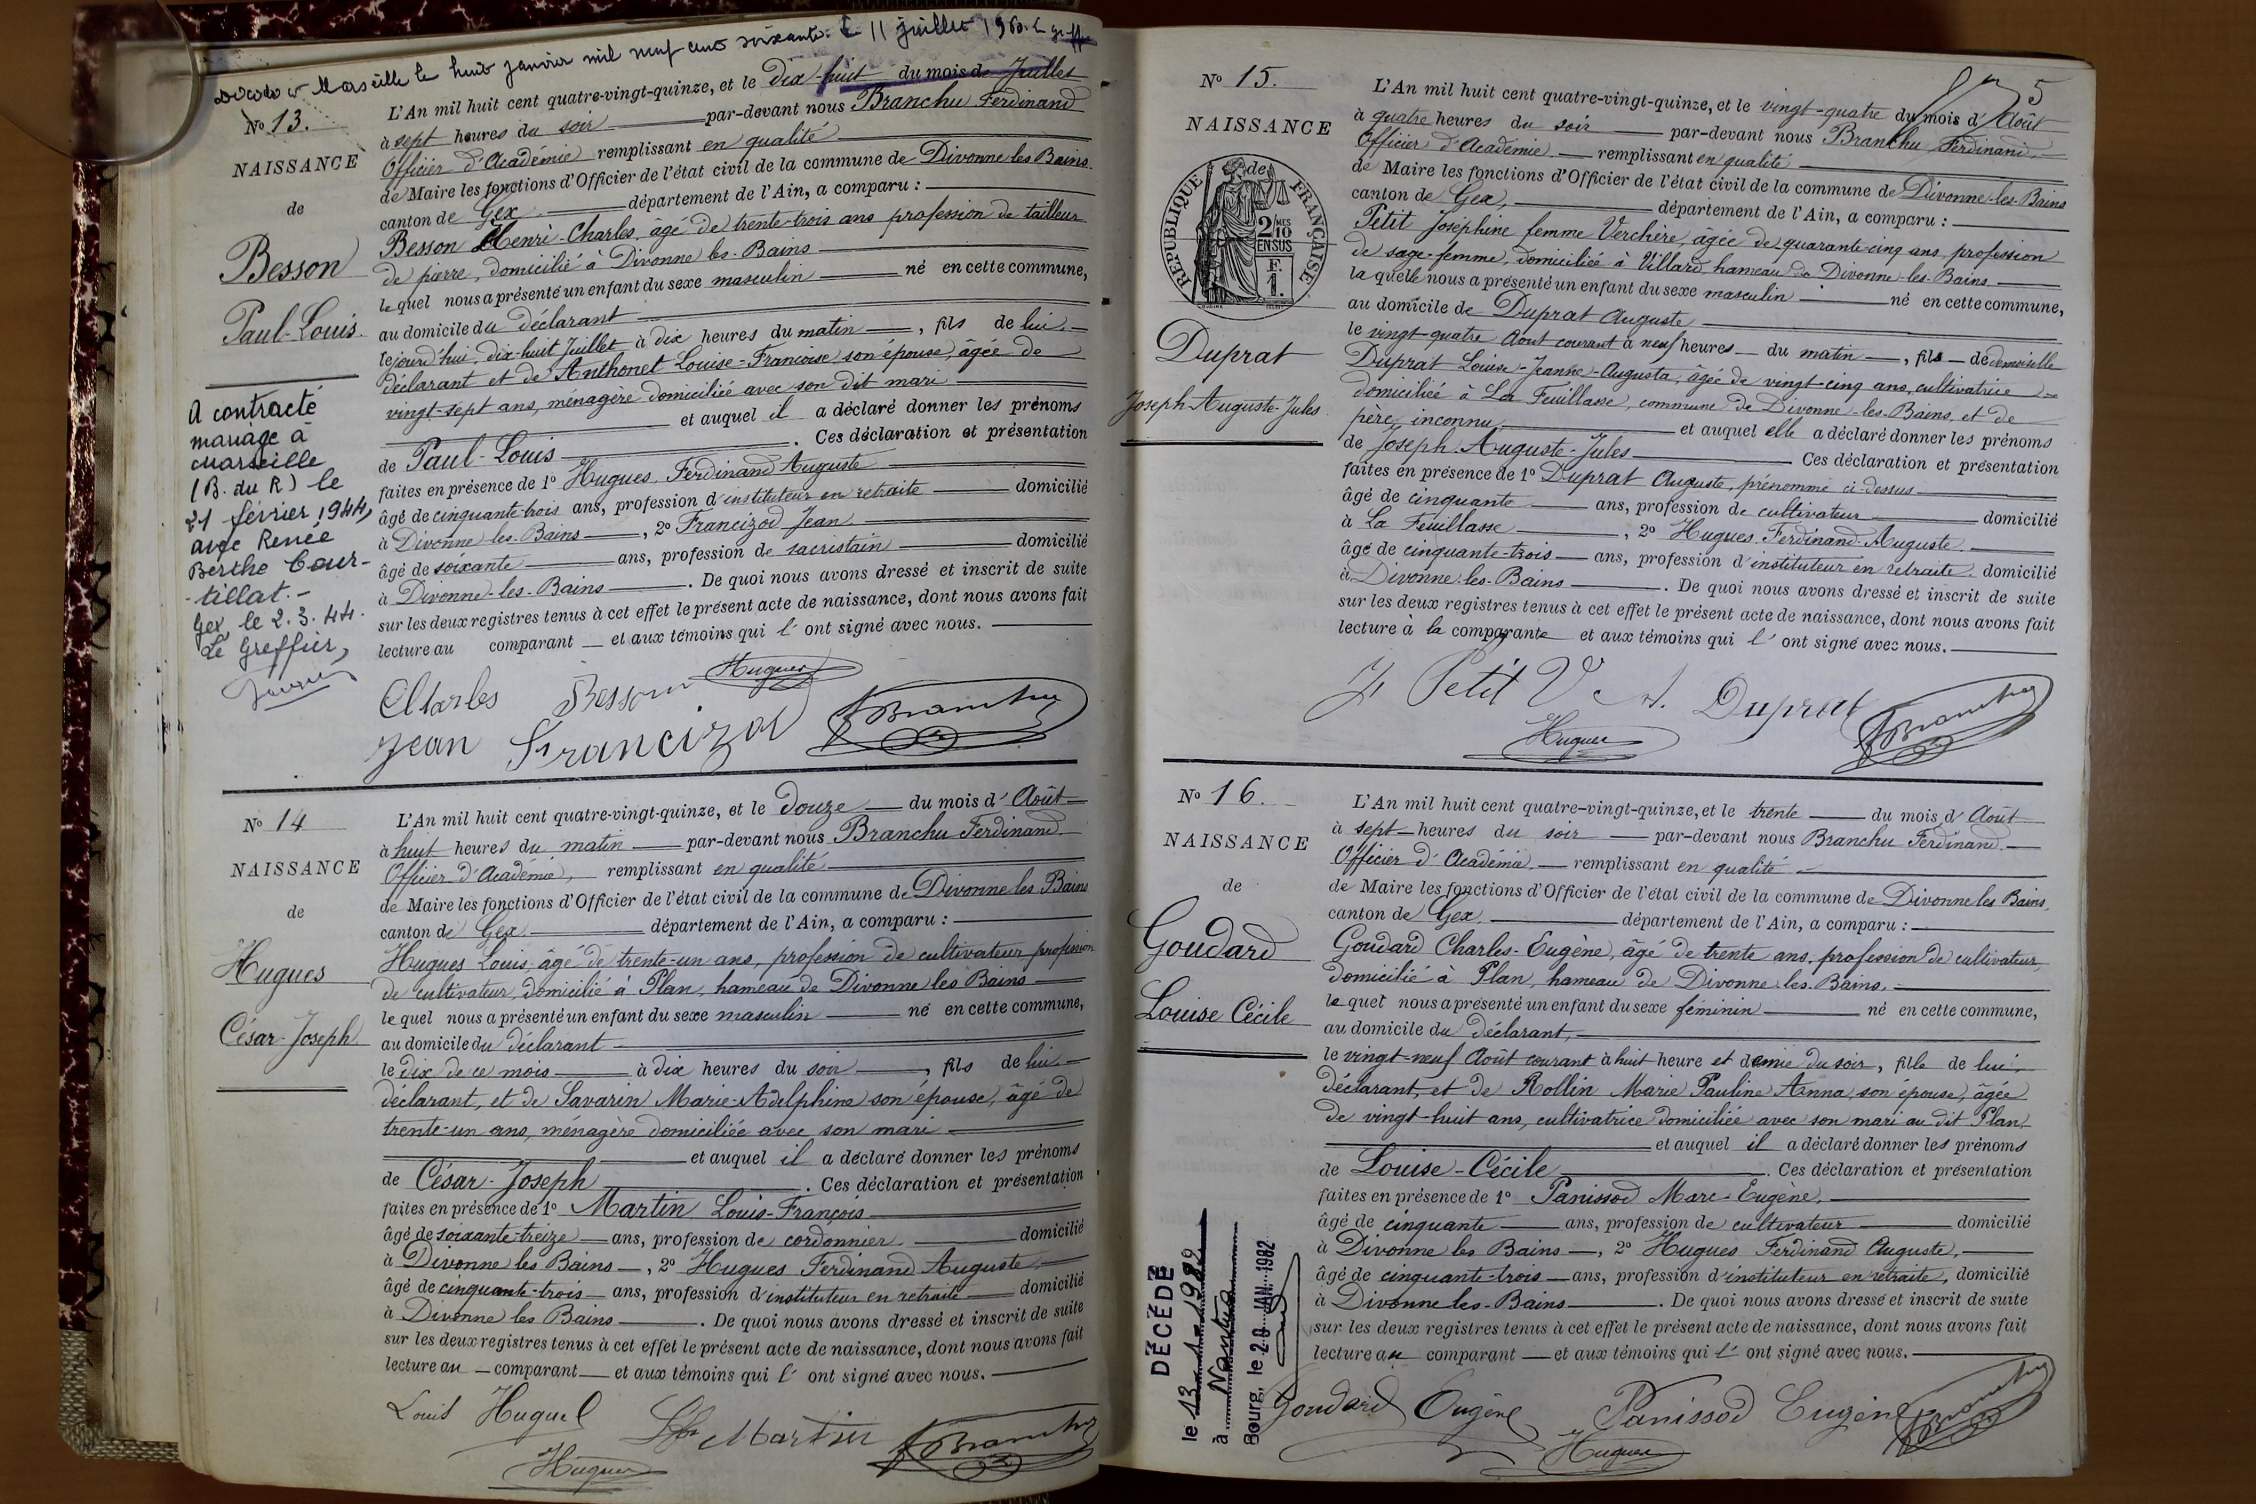 Décédé à Marseille le huit janvier mil neuf cent soixante. Le 11 juillet 1960. Le greffier
No 13.
NAISSANCE
de
Besson
Paul-Louis.
A contracté
mariage à
Marseille
(B. du R) le
21 février 1944,
avec Renée
Berthe Cour-
-tillat.-
Gex le 2.3.44.
Le Greffier,
L'An mil huit cent quatre-vingt-quinze, et le dix-huit du mois de Juillet
à sept heures du soir par-devant nous Branchu Ferdinand
Officier d'Académie remplissant en qualité
de Maire les fonctions d'Officier de l'état civil de la commune de Divonne les Bains.
canton de Gex département de l'Ain, a comparu :
Besson Henri-Charles âgé de trente-trois ans profession de tailleur
de pierre, domicilié à Divonne les-Bains
lequel nous a présenté un enfant du sexe masculin né en cette commune,
au domicile du déclarant
lejourd'hui dix-huit Juillet à dix heures du matin, fils de lui
déclarant et de Anthonet Louise-Françoise son épouse, âgée de
vingt-sept ans, ménagère domiciliée avec son dit mari
et auquel il a déclaré donner les prénoms
de Paul-Louis. Ces déclaration et présentation
faites en présence de 1o Hugues Ferdinand Auguste
âgé de cinquante-trois ans, profession d'instituteur en retraite domicilié
à Divonne les-Bains, 2o Francizod Jean
âgé de soixante ans, profession de sacristain domicilié
à Divonne-les-Bains. De quoi nous avons dressé et inscrit de suite
sur les deux registres tenus à cet effet le présent acte de naissance, dont nous avons fait
lecture au comparant et aux témoins qui l'ont signé avec nous.
Charles Besson Hugues
Jean Francizod Branchu
No 14
NAISSANCE
de
Hugues
César-Joseph
L'An mil huit cent quatre-vingt-quinze, et le douze du mois d'Août
à huit heures du matin par-devant nous Branchu Ferdinand
Officier d'Académie, remplissant en qualité
de Maire les fonctions d'Officier de l'état civil de la commune de Divonne les Bains
canton de Gex département de l'Ain, a comparu :
Hugues Louis, âgé de trente-un ans, profession de cultivateur profession
de cultivateur, domicilié à Plan, hameau de Divonne les Bains
lequel nous a présenté un enfant du sexe masculin né en cette commune,
au domicile du déclarant
le dix de ce mois à dix heures du soir, fils de lui
déclarant, et de Savarin Marie-Adelphine son épouse, âgé de
trente-un ans, ménagère domiciliée avec son mari
et auquel il a déclaré donner les prénoms
de César-Joseph. Ces déclaration et présentation
faites en présence de 1o Martin Louis-François
âgé de soixante-treize ans, profession de cordonnier domicilié
à Divonne les Bains, 2o Hugues Ferdinand Auguste
âgé de cinquante-trois ans, profession d'instituteur en retraite domicilié
à Divonne les Bains. De quoi nous avons dressé et inscrit de suite
sur les deux registres tenus à cet effet le présent acte de naissance, dont nous avons fait
lecture au comparant et aux témoins qui l'ont signé avec nous.
Louis Hugues Martin Branchu
Hugues
5
No 15.
NAISSANCE
de
RÉPUBLIQUE FRANÇAISE
2 MES
10
EN SUS
F.
1.
Duprat
Joseph-Auguste-Jules
L'An mil huit cent quatre-vingt-quinze, et le vingt-quatre du mois d'Août
à quatre heures du soir par-devant nous Branchu Ferdinand
Officier d'Académie remplissant en qualité
de Maire les fonctions d'Officier de l'état civil de la commune de Divonne-les-Bains
canton de Gex, département de l'Ain, a comparu :
Petit Joséphine femme Verchère, âgée de quarante-cinq ans, profession
de sage-femme, domiciliée à Villard, hameau de Divonne-les-Bains
laquelle nous a présenté un enfant du sexe masculin né en cette commune,
au domicile de Duprat Auguste
le vingt-quatre Août courant à neuf heures du matin, fils de demoiselle
Duprat Louise-Jeanne-Augusta, âgée de vingt-cinq ans, cultivatrice
domiciliée à La Feuillasse, commune de Divonne-les-Bains, et de
père inconnu, et auquel elle a déclaré donner les prénoms
de Joseph-Auguste-Jules Ces déclaration et présentation
faites en présence de 1o Duprat Auguste, prénommé ci-dessus
âgé de cinquante ans, profession de cultivateur domicilié
à La Feuillasse, 2o Hugues Ferdinand-Auguste
âgé de cinquante-trois ans, profession d'instituteur en retraite. domicilié
à Divonne-les-Bains. De quoi nous avons dressé et inscrit de suite
sur les deux registres tenus à cet effet le présent acte de naissance, dont nous avons fait
lecture à la comparante et aux témoins qui l'ont signé avec nous.
J. Petit V A. Duprat
Hugues Branchu
No 16.
NAISSANCE
de
Goudard
Louise Cécile
DÉCÉDÉ
le 13-1-1982
à Nantua
Bourg, le 20 JAN. 1982
L'An mil huit cent quatre-vingt-quinze, et le trente du mois d'Août
à sept heures du soir par-devant nous Branchu Ferdinand
Officier d'Académie remplissant en qualité
de Maire les fonctions d'Officier de l'état civil de la commune de Divonne les Bains,
canton de Gex, département de l'Ain, a comparu :
Goudard Charles-Eugène, âgé de trente ans, profession de cultivateur,
domicilié à Plan, hameau de Divonne-les-Bains,
lequel nous a présenté un enfant du sexe féminin né en cette commune,
au domicile du déclarant,
le vingt-neuf Août courant à huit heure et demie du soir, fille de lui,
déclarant, et de Rollin Marie Pauline Anna, son épouse, âgée
de vingt-huit ans, cultivatrice domiciliée avec son mari au dit Plan,
et auquel il a déclaré donner les prénoms
de Louise-Cécile. Ces déclaration et présentation
faites en présence de 1o Panissod Marc-Eugène,
âgé de cinquante ans, profession de cultivateur domicilié
à Divonne les Bains, 2o Hugues Ferdinand Auguste,
âgé de cinquante-trois ans, profession d'instituteur en retraite, domicilié
à Divonne les-Bains. De quoi nous avons dressé et inscrit de suite
sur les deux registres tenus à cet effet le présent acte de naissance, dont nous avons fait
lecture au comparant et aux témoins qui l'ont signé avec nous.
Goudard Eugène Panissod Eugène Branchu
Hugues